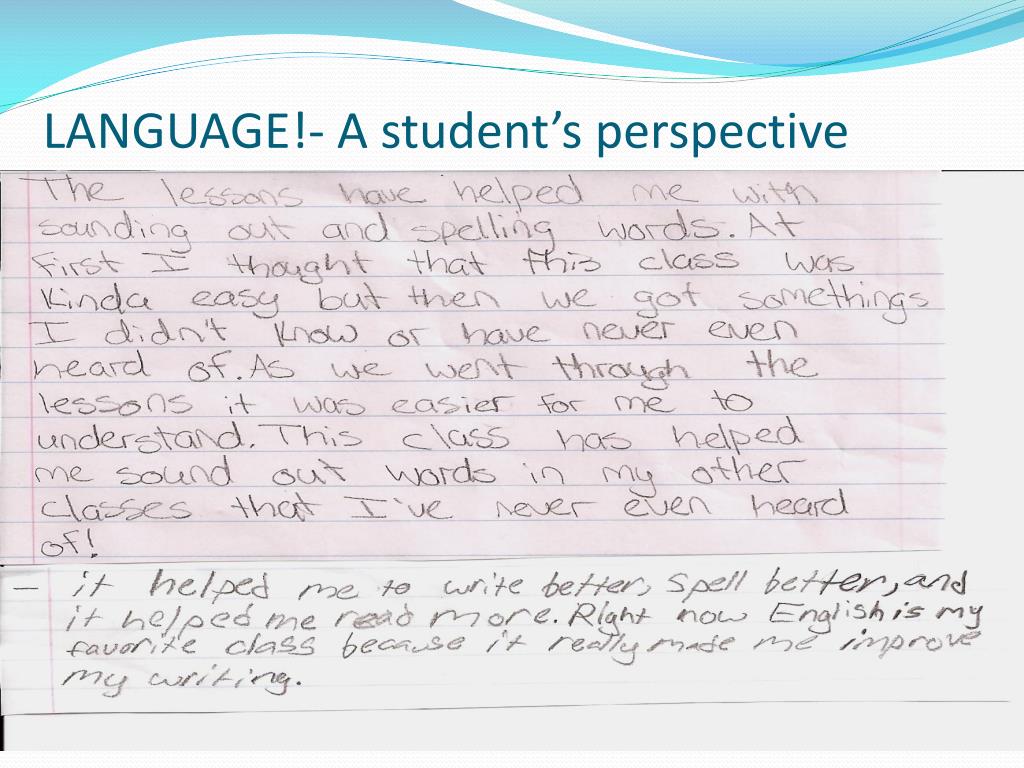 LANGUAGE!- A student’s perspective
The lessons have helped me with
sounding out and spelling words. At
first I thought that this class was
Kinda easy but then we got somethings
I didn't know or have never even
heard of. As we went through the
lessons it was easier for me to
understand. This class has helped
me sound out words in my other
classes that I've never even heard
of!
— it helped me to write better, spell better, and
it helped me read more. Right now English is my
favorite class because it really made me improve
my writing.